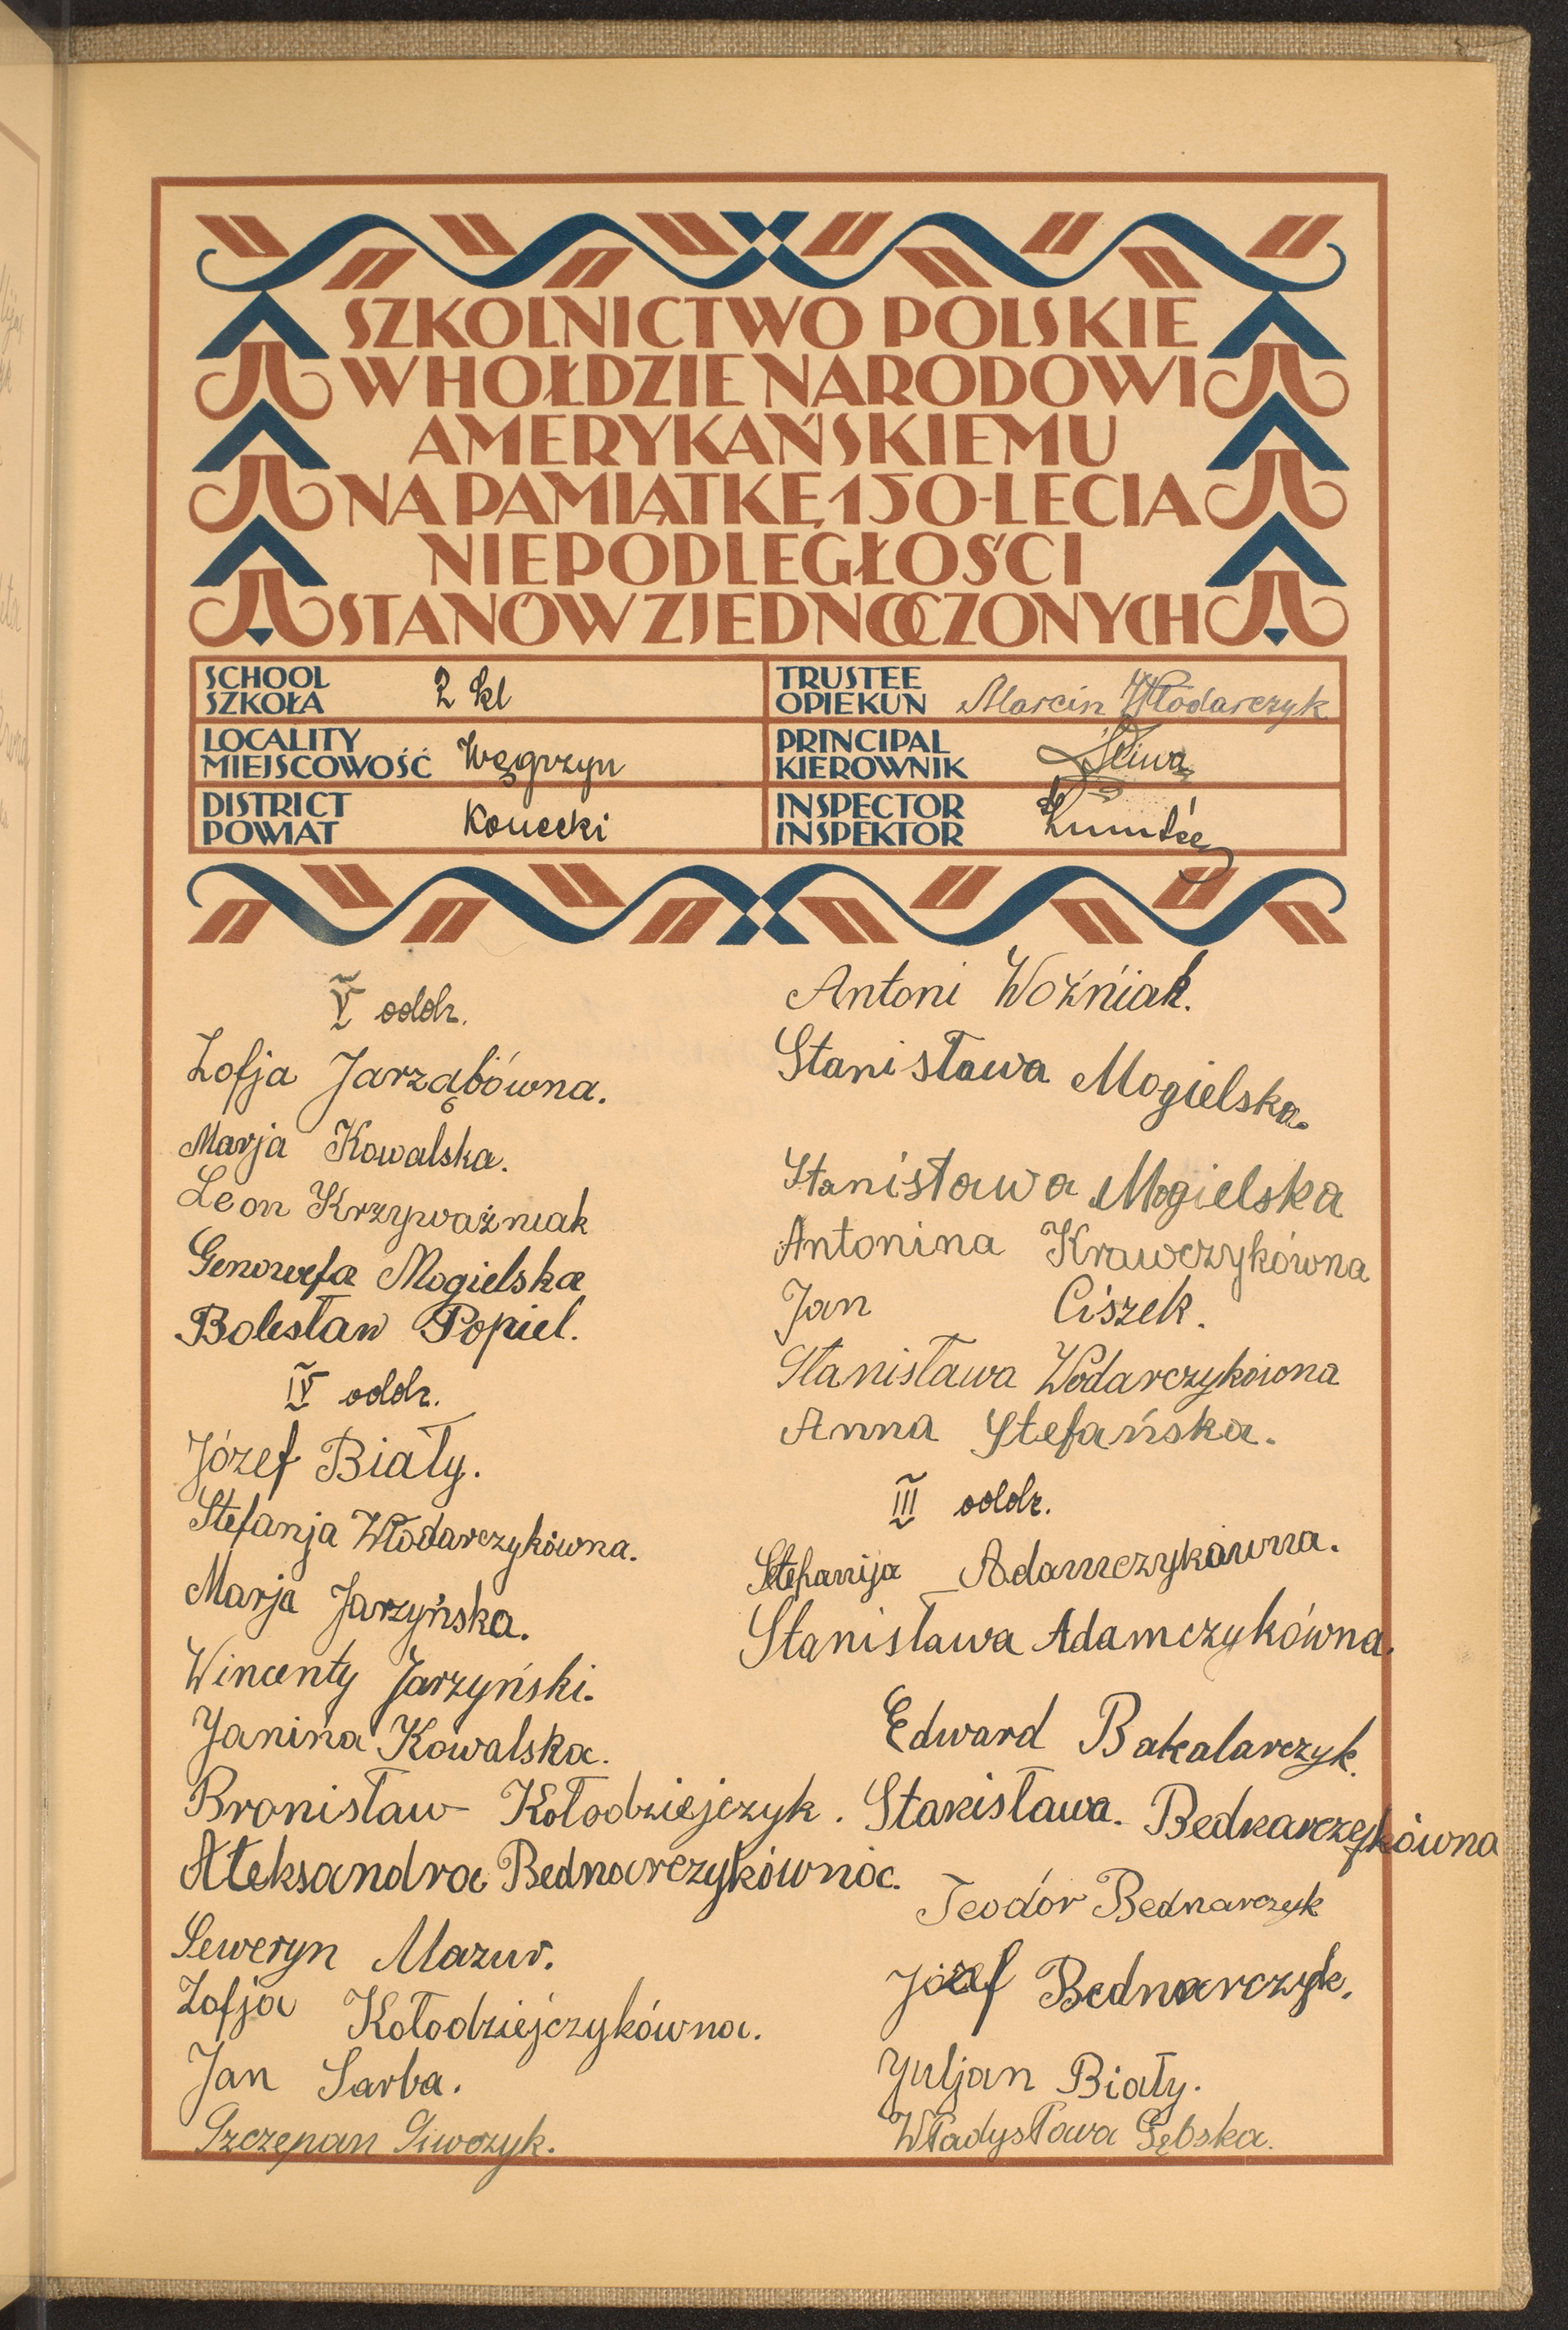 SZKOLNICTWO POLSKIE
W HOŁDZIE NARODOWI
AMERYKAŃSKIEMU
NA PAMIĄTKĘ 150-LECIA
NIEPODLEGŁOŚCI
STANÓW ZJEDNOCZONYCH
SCHOOL
SZKOŁA
2 kl
TRUSTEE
OPIEKUN
Marcin Włodarczyk
LOCALITY
MIEJSCOWOŚĆ
Węgrzyn
PRINCIPAL
KIEROWNIK
Śliwa
DISTRICT
POWIAT
Konecki
INSPECTOR
INSPEKTOR
V oddz.
Zofja Jarząbówna.
Marja Kowalska.
Leon Krzyważniak
Genowefa Mogielska
Bolesław Popiel.
IV oddz.
Józef Biały.
Stefanja Włodarczykówna.
Marja Jarzyńska.
Wincenty Jarzyński.
Janina Kowalska.
Bronisław Kołodziejczyk.
Aleksandra Bednarczykówna.
Seweryn Mazur.
Zofja Kołodziejczykówna.
Jan Sarba.
Szczepan Siwczyk.
Antoni Woźniak.
Stanisława Mogielska.
Stanisława Mogielska
Antonina Krawczykówna
Jan Ciszek.
Stanisława Włodarczykówna
Anna Stefańska.
III oddz.
Stefanija Adamczykówna.
Stanisława Adamczykówna.
Edward Bakalarczyk.
Stanisława Bednarczykówna
Teodór Bednarczyk
Józef Bednarczyk.
Juljan Biały.
Władysława Gębska.